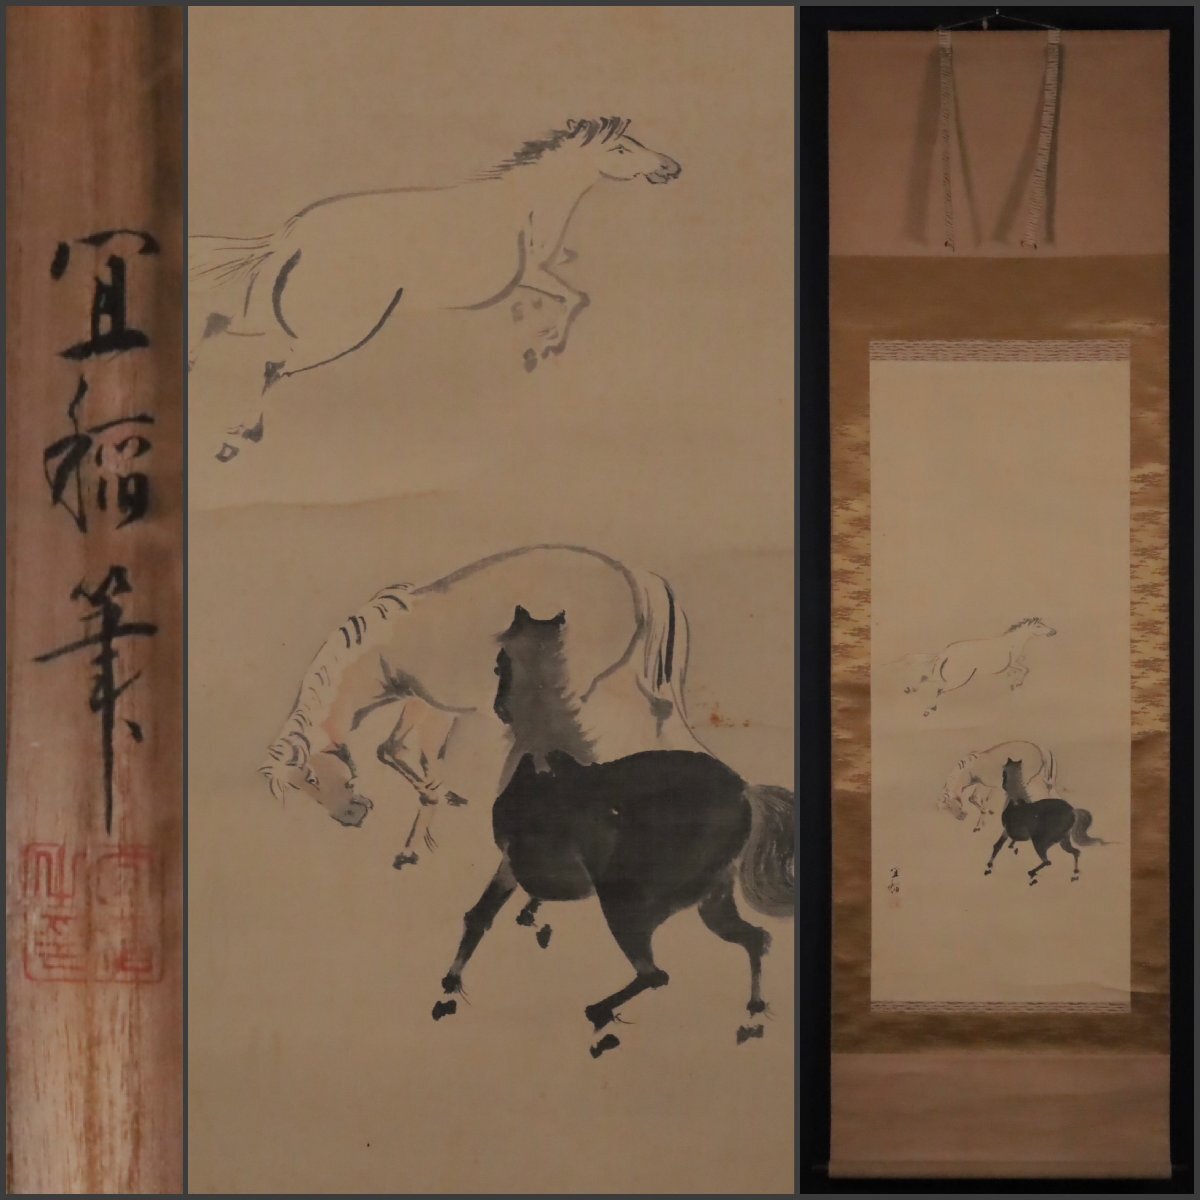 宜稲筆
宜稲